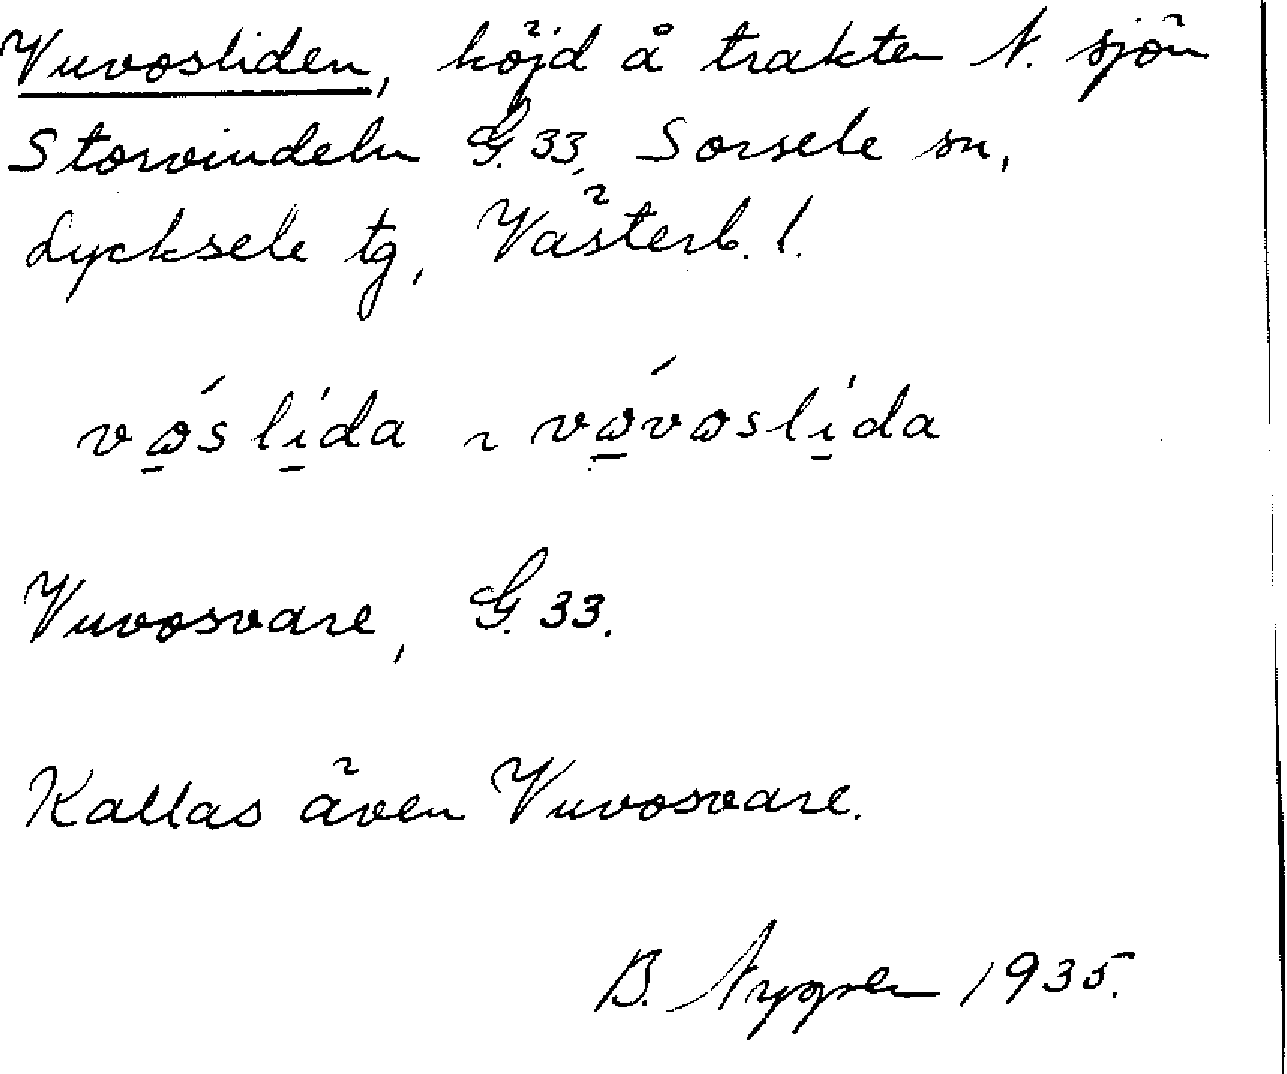 Vuvosliden, höjd å trakten N. sjön
Storvindeln G. 33, Sorsele sn,
Lycksele tg, Västerb. l.
vώ̲slí̲da ~ vώ̲vωslí̲da
Vuvosvare, G. 33.
Kallas även Vuvosvare.
B. Nygren 1935.